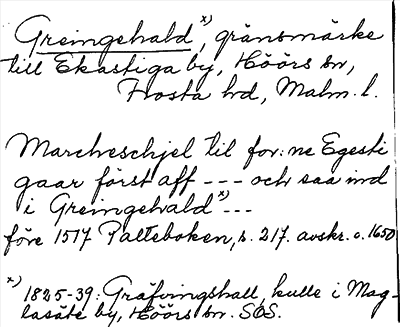 Greingehald x), gränsmärke
till Ekastiga by, Höörs sn,
Frosta hd, Malm. l.
Marcheschjel til for:ne Egesti
gaar först aff --- och saa ind
i Greingehald x) ---
före 1517 Palteboken, s. 217. avskr. c. 1650
x) 1825-39: Gräfvingshall, kulle i Mag-
lasäte by, Höörs sn. SOS.